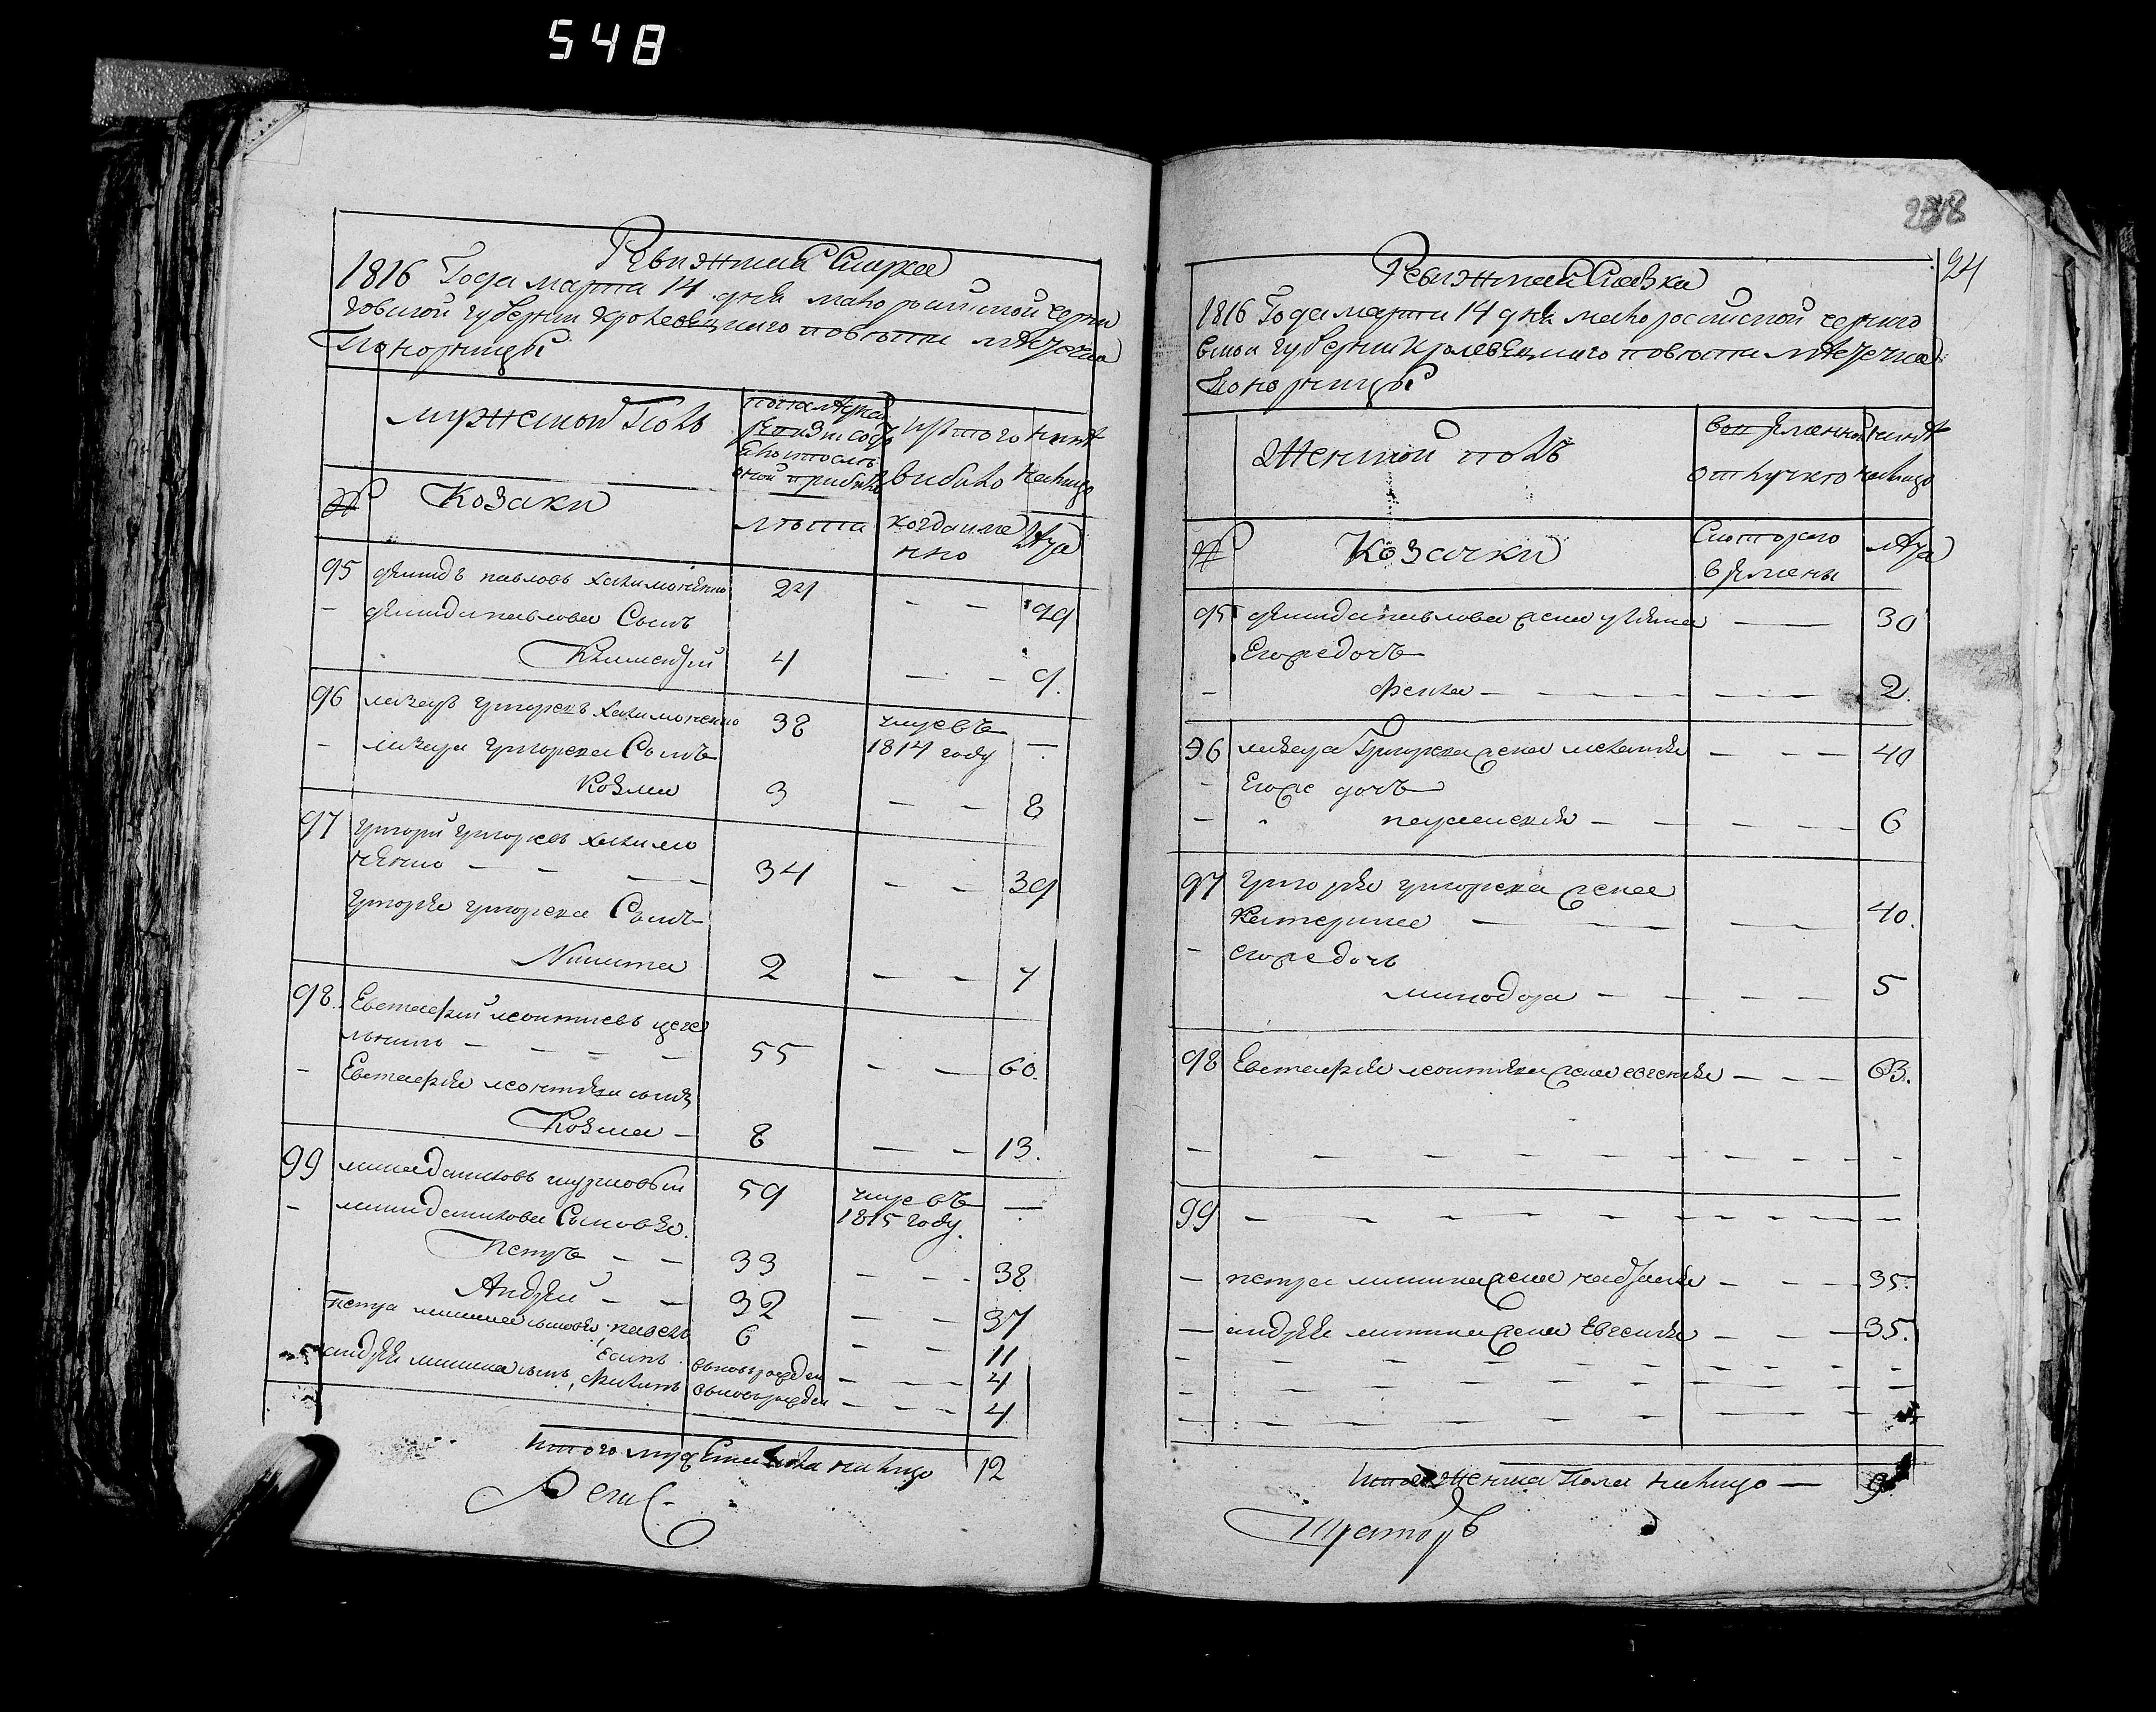 548
Ревизская Скаска
1816 Года марта 14 дня малороссийской черни
говской губернии Кролевецкаго повета местечка
Понорницы
мужеской Полъ
Козаки
лета
выбыло
когда име
нно
ныне
налицо
лета
95 Демидъ павловъ халимоненко 24 — — 29
— Демида павлова Сынъ
Климентий 4 — — 9.
96 лазарь григориевъ халимоненко 38 умре въ 1814 году —
— лазаря григориева Сынъ
Козма 3 — — 8
97 григорий григориевъ халимо
ненко — — — — 34 — — 39
григория григориева Сынъ
Никита 2 — — 7
98. Евстафий леонтиевъ цеге
льникъ — — — — 55 — — 60.
— Евстафия леонтиева сынъ
Козма — 8 — — 13.
99 мина даниловъ 59 умре въ 1815 году. —
— мины данилова Сыновья.
Петръ — — 33 — — 38
Андрей — — 32 — — 37
петра минина сыновья, павелъ 6 — — 11
вновьрожден — — — 4
андрея минина сынъ, вновьрожден — — — 4
итого мужеска пола налицо 12
238
24
Ревизская Скаска
1816 Года марта 14 дня малороссийской черниго
вской губернии Кролевецкаго повета местечка
Понорницы
Женской полъ
Козачки
отлучке
Съ которого
времени
ныне
налицо
лета
95 Демида павлова жена улияна — — 30
Егоже дочь
— феня — — — — — — 2.
96 лазаря Григориева жена мелания — — — 40
— Егоже дочь
— — — — — 6
97 Григория григориева жена
Катерина — — — — — 40.
— егоже дочь
минодора — — — — 5
98 Евстафия леонтиева жена евгения — — — 63.
— — — — — — — — — —
99 — — — — — — — — —
— петра минина жена — — — 35.
— андрея минина жена Евгения — — — 35.
— — — — — — — — —
— — — — — — — — —
— — — — — — — — —
итого женска Пола налицо — 9